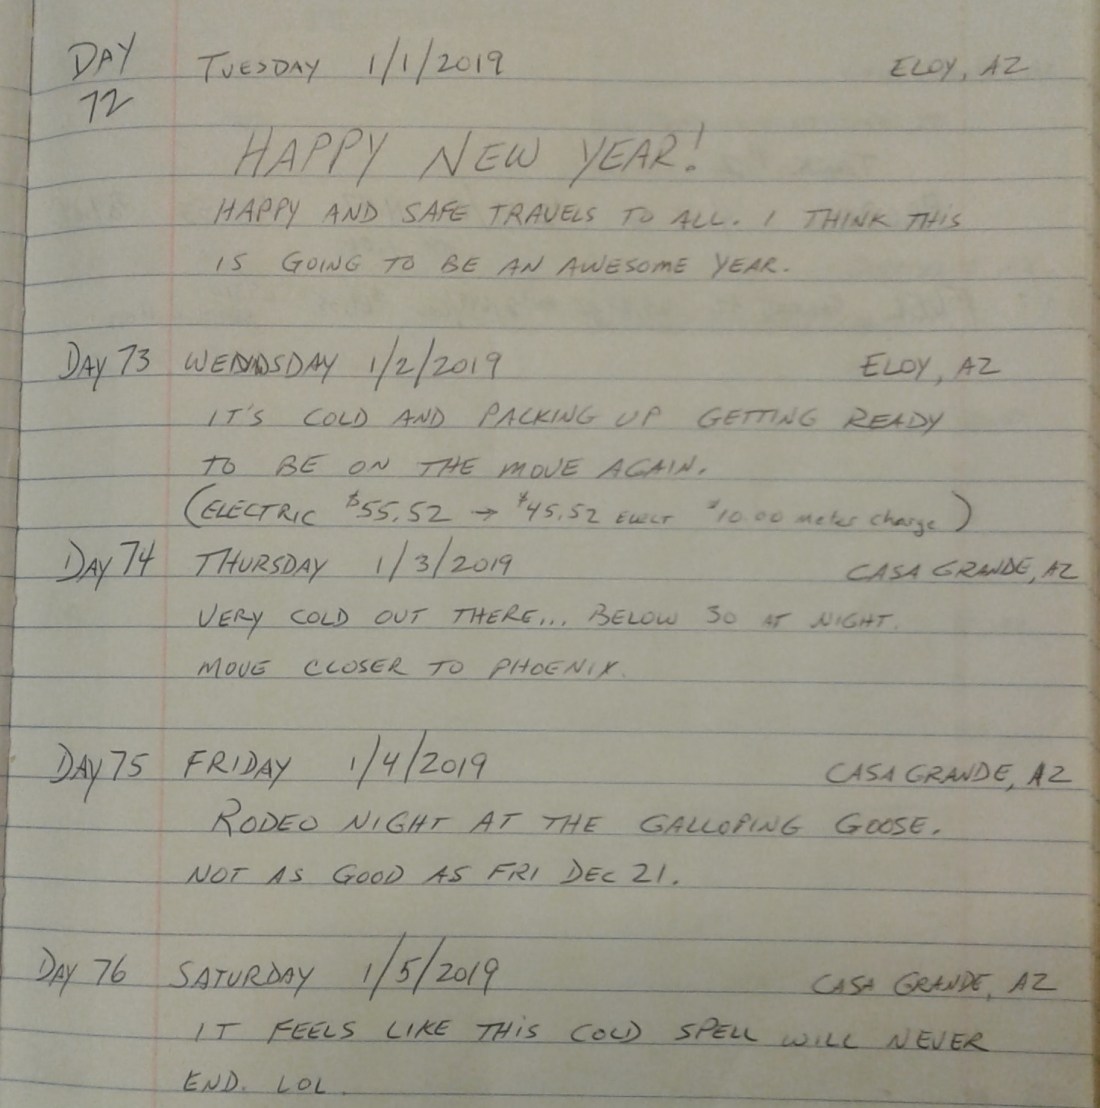 DAY TUESDAY 1/1/2019 ELOY, AZ
72
HAPPY NEW YEAR!
HAPPY AND SAFE TRAVELS TO ALL. I THINK THIS
IS GOING TO BE AN AWESOME YEAR.
DAY 73 WEDNDSDAY 1/2/2019 ELOY, AZ
IT'S COLD AND PACKING UP GETTING READY
TO BE ON THE MOVE AGAIN.
(ELECTRIC $55.52 → $45.52 ELECT $10.00 meter charge)
DAY 74 THURSDAY 1/3/2019 CASA GRANDE, AZ
VERY COLD OUT THERE... BELOW 30 AT NIGHT.
MOVE CLOSER TO PHOENIX.
DAY 75 FRIDAY 1/4/2019 CASA GRANDE, AZ
RODEO NIGHT AT THE GALLOPING GOOSE.
NOT AS GOOD AS FRI DEC 21.
DAY 76 SATURDAY 1/5/2019 CASA GRANDE, AZ
IT FEELS LIKE THIS COLD SPELL WILL NEVER
END. LOL.